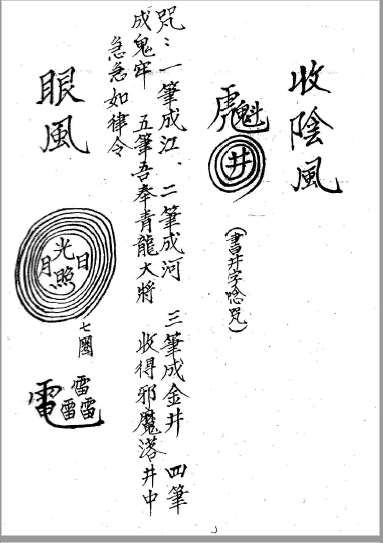 收陰風
虎魁
井
(書井字唸咒)
咒:一筆成江、二筆成河 三筆成金井 四筆
成鬼牢 五筆吾奉青龍大將 收得邪魔落井中
急急如律令
眼風
日月光照
七圈
電雷雷雷